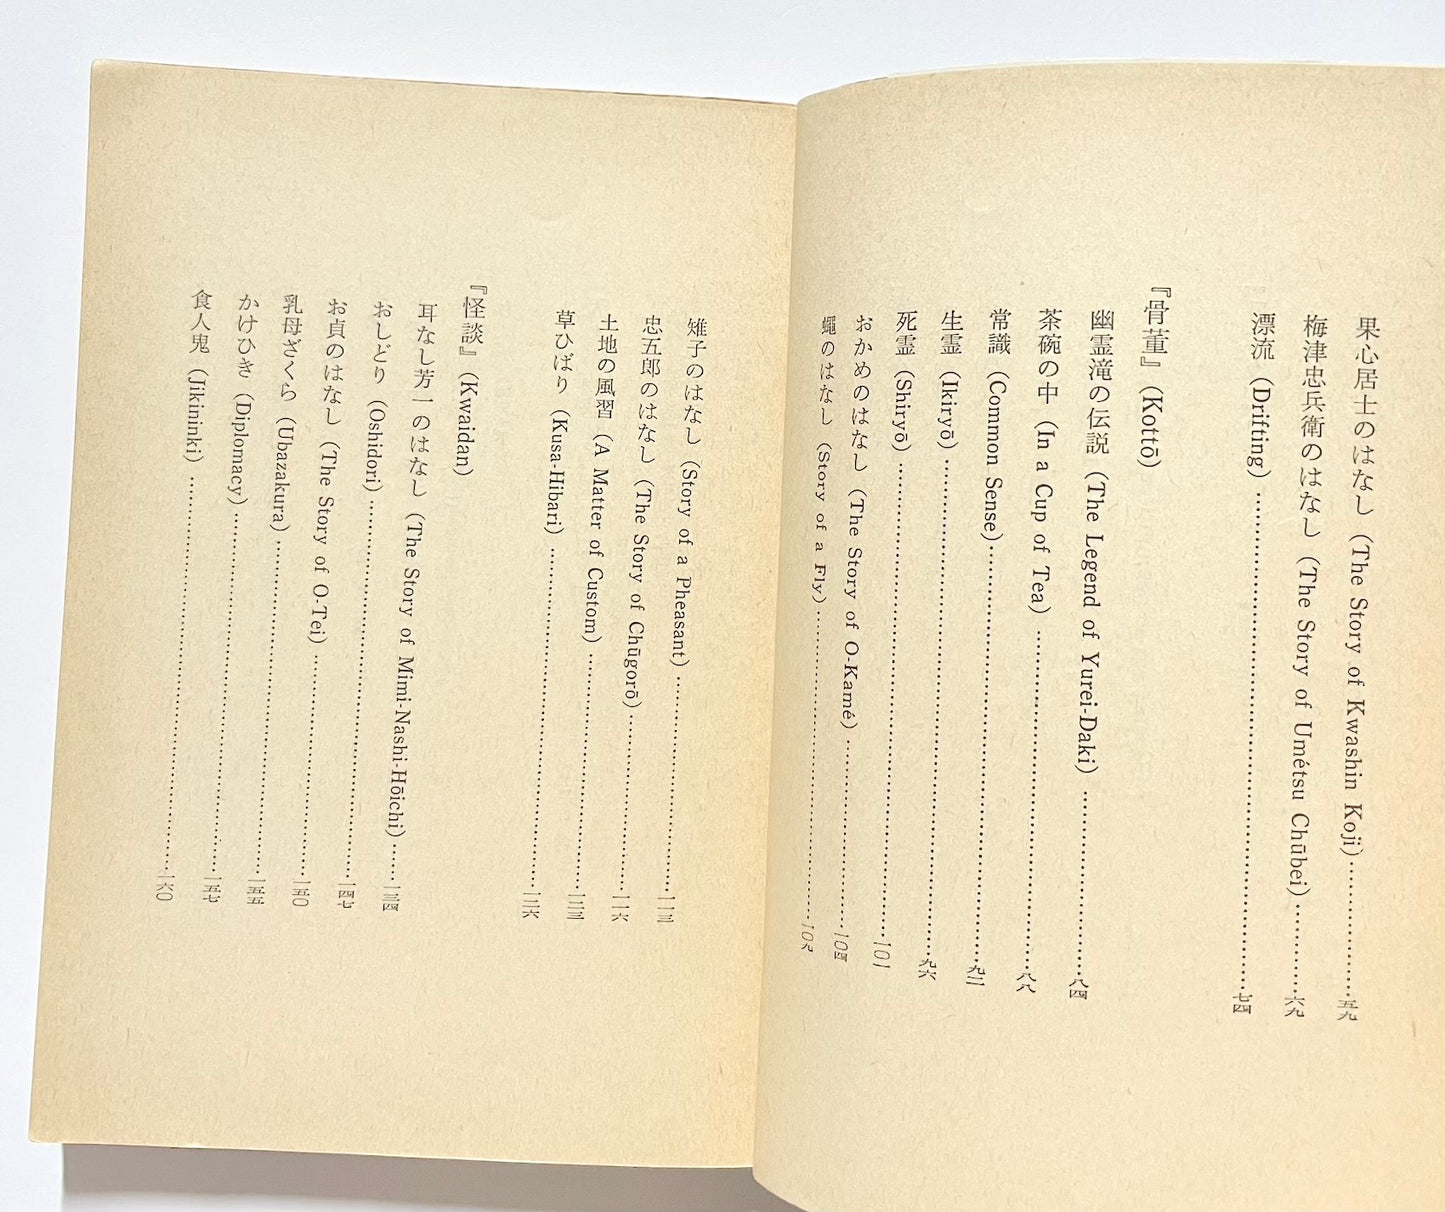 果心居士のはなし (The Story of Kwashin Koji)……五九
梅津忠兵衛のはなし (The Story of Umétsu Chūbei)……六九
漂流 (Drifting)……七四
『骨董』 (Kottō)
幽霊滝の伝説 (The Legend of Yurei-Daki)……八四
茶碗の中 (In a Cup of Tea)……八八
常識 (Common Sense)……九二
生霊 (Ikiryō)……九六
死霊 (Shiryō)……一〇一
おかめのはなし (The Story of O-Kamé)……一〇四
蠅のはなし (Story of a Fly)……一〇九
雉子のはなし (Story of a Pheasant)……一一三
忠五郎のはなし (The Story of Chūgorō)……一一六
土地の風習 (A Matter of Custom)……一二三
草ひばり (Kusa-Hibari)……一二六
『怪談』 (Kwaidan)
耳なし芳一のはなし (The Story of Mimi-Nashi-Hōichi)……一三四
おしどり (Oshidori)……一四七
お貞のはなし (The Story of O-Tei)……一五〇
乳母ざくら (Ubazakura)……一五五
かけひき (Diplomacy)……一五七
食人鬼 (Jikininki)……一六〇